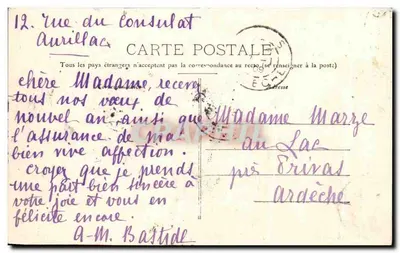 12. rue du Consulat
Aurillac
CARTE POSTALE
Tous les pays étrangers n'acceptent pas la correspondance au recto (se renseigner à la poste)
chère Madame, recevez
tous nos vœux de
nouvel an ainsi que
l'assurance de ma
bien vive affection.
croyez que je prends
une part bien sincère à
votre joie et vous en
félicite encore.
A-M. Bastide
Madame Marze
au Lac
près Privas
Ardèche